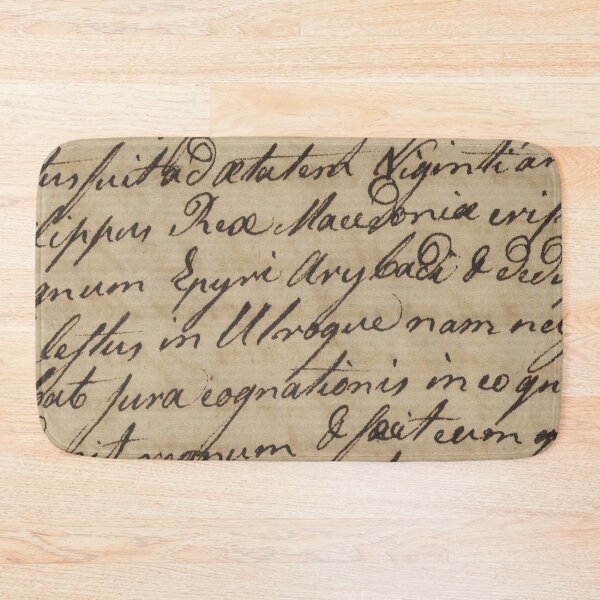 tus fuit ad ætatem Viginti an
lippus Rex Macedoniæ erip
gnum Epyri Arybadi & dedi
lestus in Utroque nam neg
bat jura cognationis in eo qu
& fecit eum